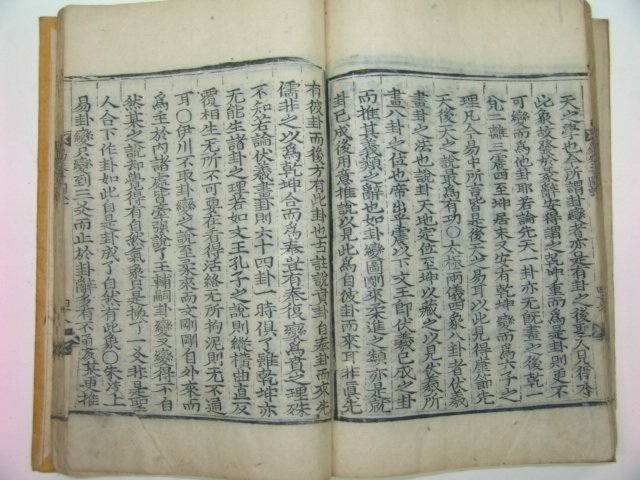 天之學也今所謂卦變者亦是有卦之後聖人見得有
此象故發於彖辭安得謂之乾坤重而爲是卦則更不
可變而爲他卦耶若論先天一卦亦无旣畫之後乾一
兌二離三震四至坤居末又安有乾坤變而爲六子之
理凡今易中所言皆是後天之易耳以此見得康節先
天後天之說最爲有功〇太極兩儀四象八卦者伏羲
畫卦之法也說卦天地定位至坤以藏之以見伏羲所
畫八卦之位也帝出乎震以下文王即伏羲已成之卦
而推其義類之辭也如卦變圖剛來柔進之類亦是就
卦已成後用意推說以見此爲自彼卦而來耳非眞先
有彼卦而後方有此卦也古註說賁卦自泰卦而來先
儒非之以爲乾坤合而爲泰豈有泰復變爲賁之理殊
不知若論伏羲畫卦則六十四卦一時俱了雖乾坤亦
无能生諸卦之理若如文王孔子之說則縱橫曲直反
覆相生无所不可要在看得活絡无所拘泥則无不通
耳〇伊川不取卦變之說至柔來而文剛剛自外來而
爲主於內諸處皆牽强說了王輔嗣卦變又變得不自
然某之說却覺得有自然氣象只是換了一爻非是聖
人合下作卦如此自是卦成了自然有此象〇朱漢上
易卦變只變到三爻而止於卦辭多有不通某更推